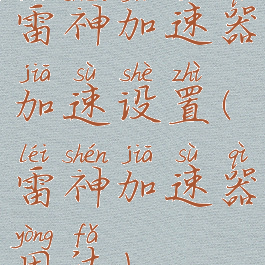 雷神加速器
jiā sù shè zhì
加速设置(
léi shén jiā sù qì
雷神加速器
yòng fǎ
用法)